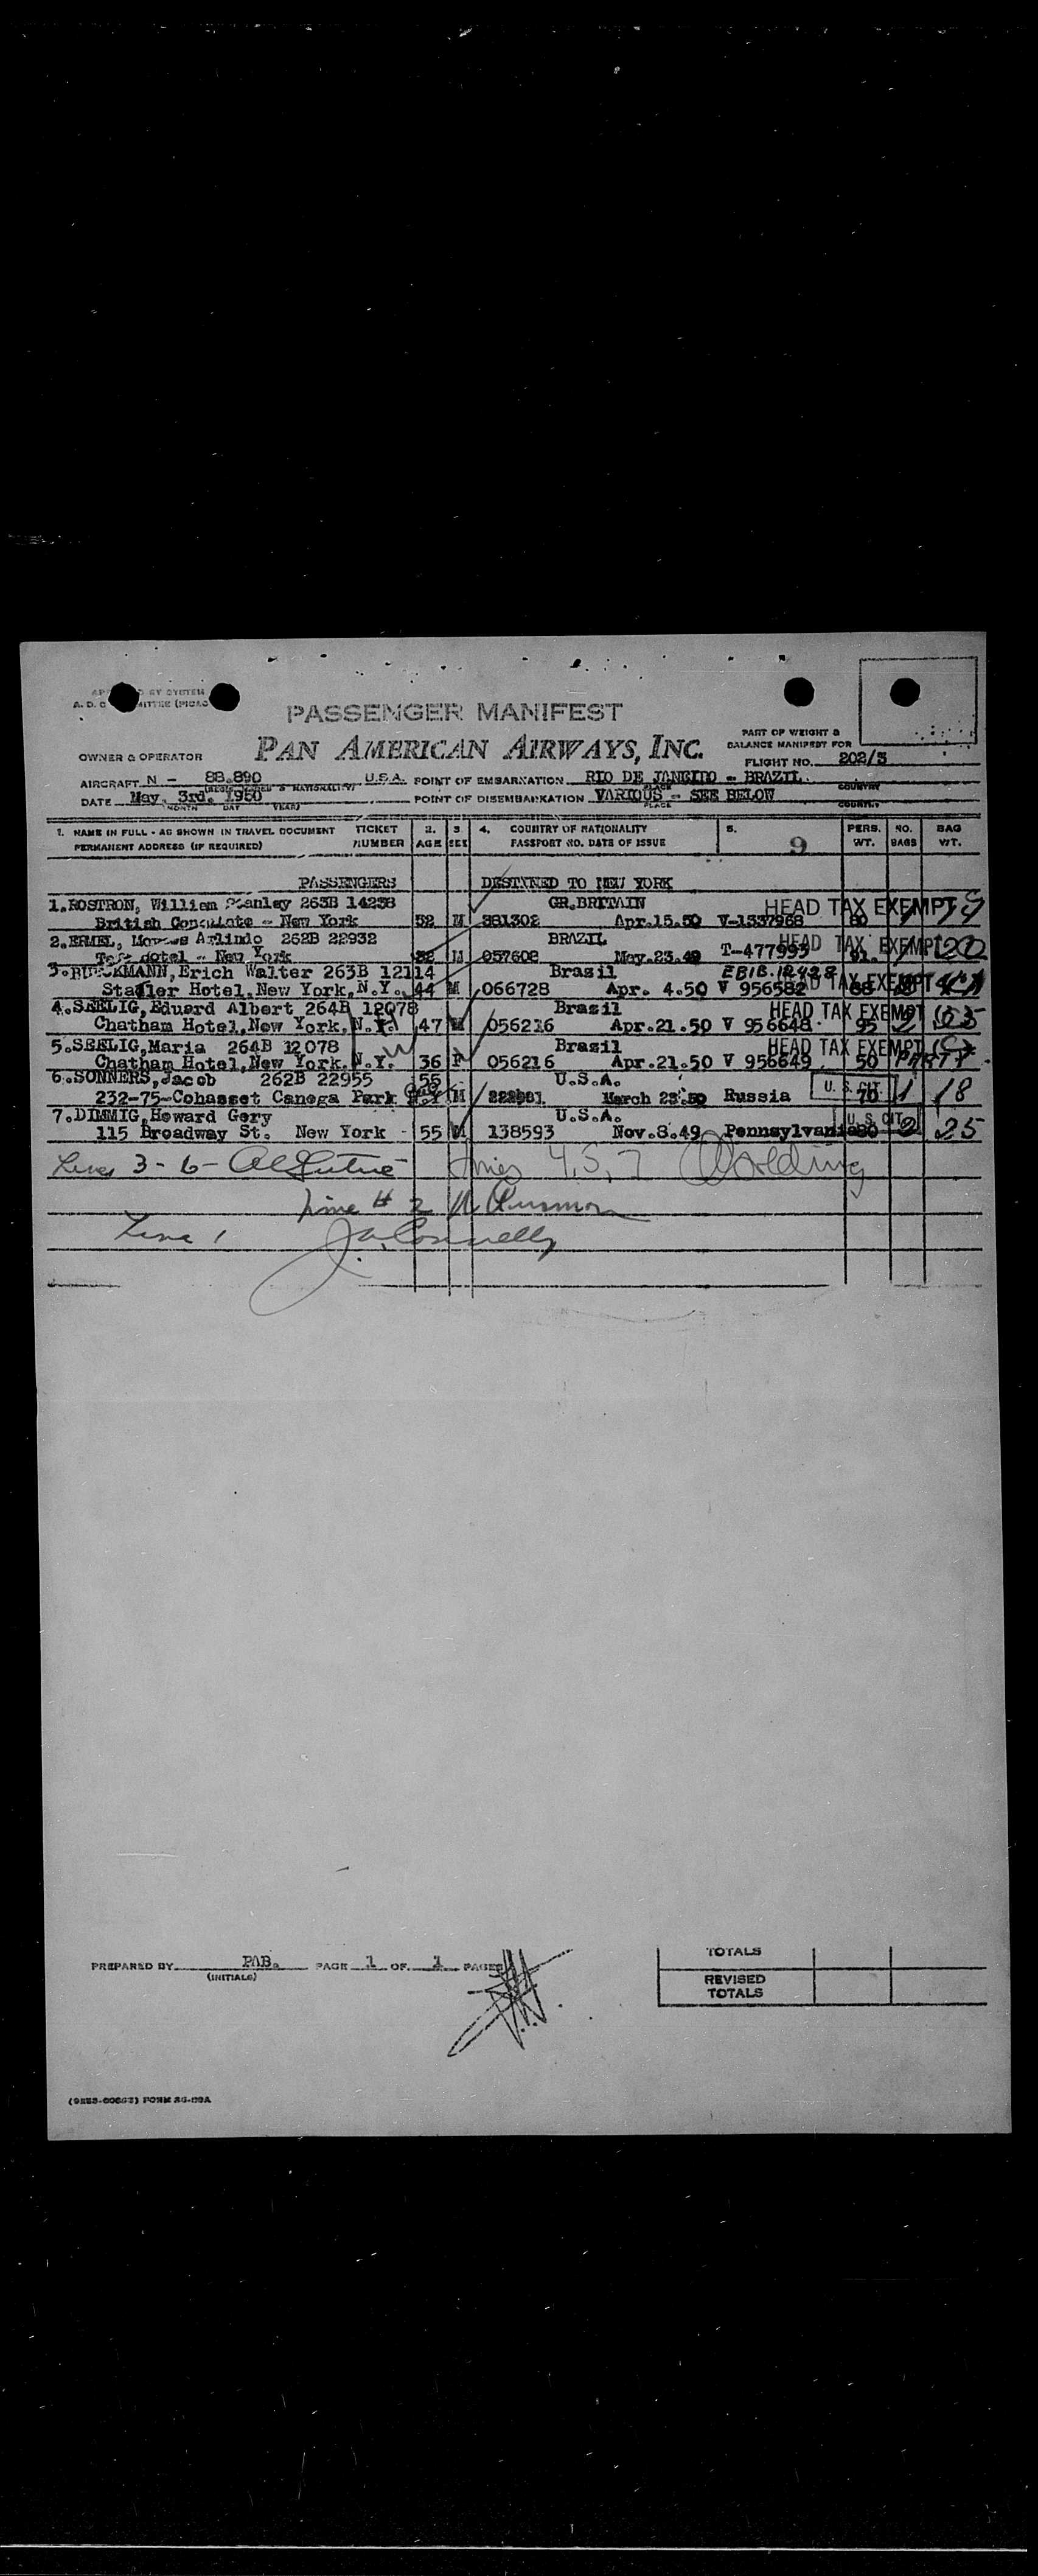 PASSENGER MANIFEST
PAN AMERICAN AIRWAYS, INC.
PART OF WEIGHT &
BALANCE MANIFEST FOR
OWNER & OPERATOR
FLIGHT NO. 202/3
AIRCRAFT N - 88.890 U.S.A. POINT OF EMBARKATION RIO DE JANEIRO - BRAZIL.
PLACE COUNTRY
DATE May. 3rd. 1950 POINT OF DISEMBARKATION VARIOUS - SEE BELOW
MONTH DAY YEAR PLACE COUNTRY
1. NAME IN FULL - AS SHOWN IN TRAVEL DOCUMENT TICKET 2. 3. 4. COUNTRY OF NATIONALITY 5. PERS. NO. BAG
PERMANENT ADDRESS (IF REQUIRED) NUMBER AGE SEX PASSPORT NO. DATE OF ISSUE 9 WT. BAGS WT.
PASSENGERS DESTINED TO NEW YORK
1. ROSTRON, William Stanley 263B 14238 GR.BRITAIN HEAD TAX EXEMPT
British Consulate - New York 52 M 381302 Apr.15.50 V-1337968 80
2. ERMEL, Arlindo 262B 22932 BRAZIL HEAD TAX EXEMPT 20
Hotel - New York M 057602 May.23.49 T-477993
3. Erich Walter 263B 12114 Brasil
Statler Hotel, New York, N.Y. 44 M 066728 Apr. 4.50 V 956582 88 TAX EXEMPT
4. SEELIG, Eduard Albert 264B 12078 Brasil HEAD TAX EXEMPT
Chatham Hotel, New York, N.Y. 47 M 056216 Apr.21.50 V 956648 95 2
5. SEELIG, Maria 264B 12078 Brasil HEAD TAX EXEMPT
Chatham Hotel, New York. N.Y. 36 F 056216 Apr.21.50 V 956649 50 PARTY
6. SONNERS, Jacob 262B 22955 55 U.S.A. U. S. CIT.
232-75-Cohasset Canoga Park M March 23.50 Russia 70 1 18
7. DIMMIG, Howard Gery U.S.A. U. S. CIT.
115 Broadway St. New York - 55 M 138593 Nov.8.49 Pennsylvania 80 2 25
Lines 3 - 6 - Lines 4, 5, 7
Line # 2
Line 1 J. A. Connelly
PREPARED BY PAB. PAGE 1 OF 1 PAGES
(INITIALS)
TOTALS
REVISED
TOTALS